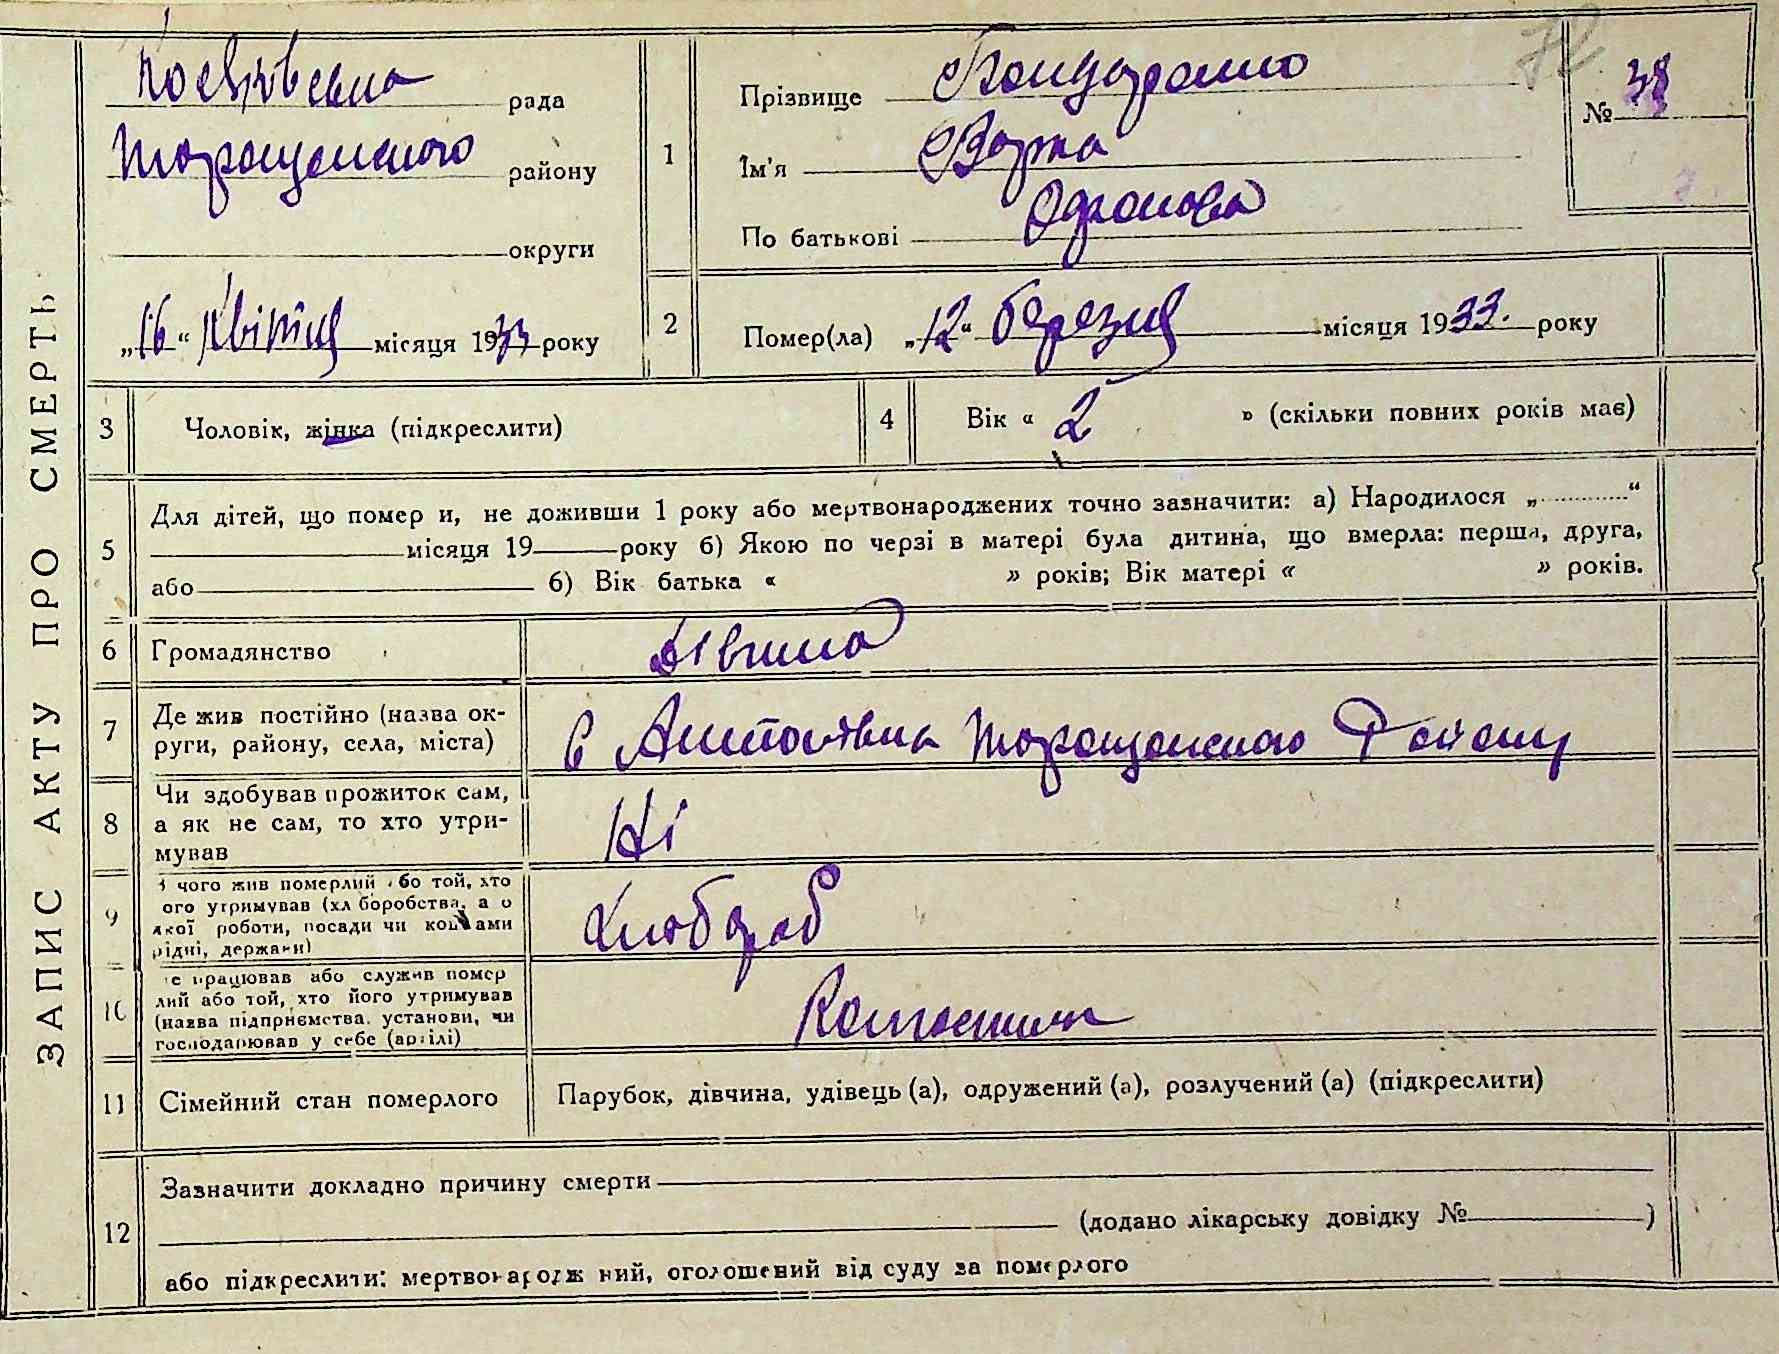 ЗАПИС АКТУ ПРО СМЕРТЬ
рада
Таращанського району
округи
„16“ Квітня місяця 1933 року
1
Прізвище Бондаренко
Ім'я Варка
По батькові
№ 38
2
Померла(ла) „12“ березня місяця 1933. року
3
Чоловік, жінка (підкреслити)
4
Вік « 2 » (скільки повних років має)
5
Для дітей, що померли, не доживши 1 року або мертвонароджених точно зазначити: а) Народилося „..........“
місяця 19 року б) Якою по черзі в матері була дитина, що вмерла: перша, друга,
або б) Вік батька « » років; Вік матері « » років.
6
Громадянство Дівчина
7
Де жив постійно (назва ок-
руги, району, села, міста)
с Антонівка Таращанського Району
8
Чи здобував прожиток сам,
а як не сам, то хто утри-
мував
Ні
9
З чого жив померлий або той, хто
його утримував (хліборобства, а о
якої роботи, посади чи коштами
рідні, держави)
Хлібороб
10
Де працював або служив помер
лий або той, хто його утримував
(назва підприємства, установи, чи
господарював у себе (артілі)
11
Сімейний стан померлого
Парубок, дівчина, удівець (а), одружений (а), розлучений (а) (підкреслити)
12
Зазначити докладно причину смерти
(додано лікарську довідку № )
або підкреслити: мертвонароджений, оголошений від суду за померлого